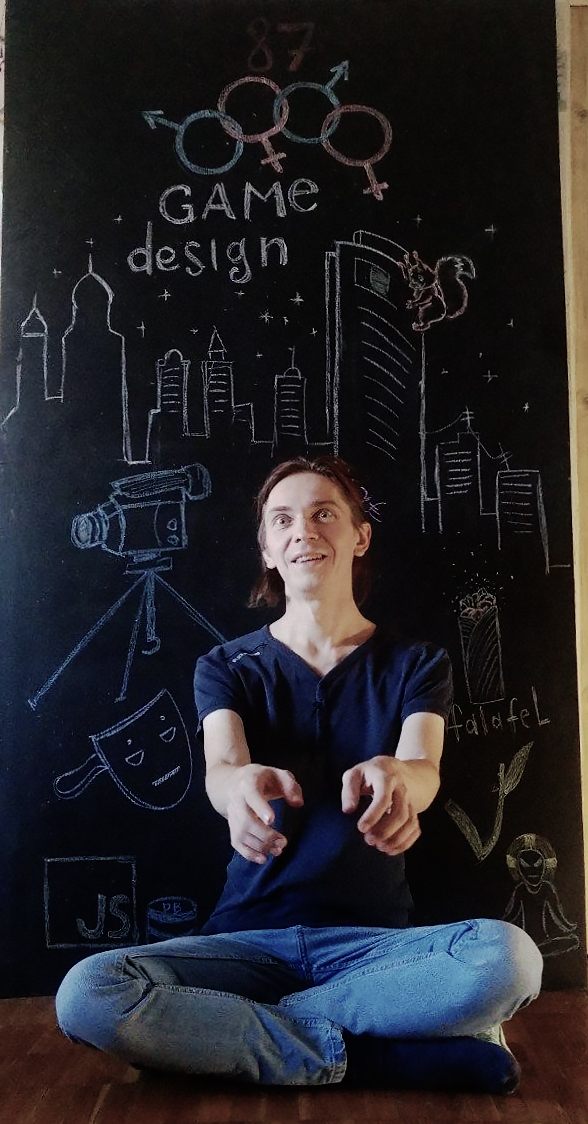 87
GAMe
design
falafel
JS
DB